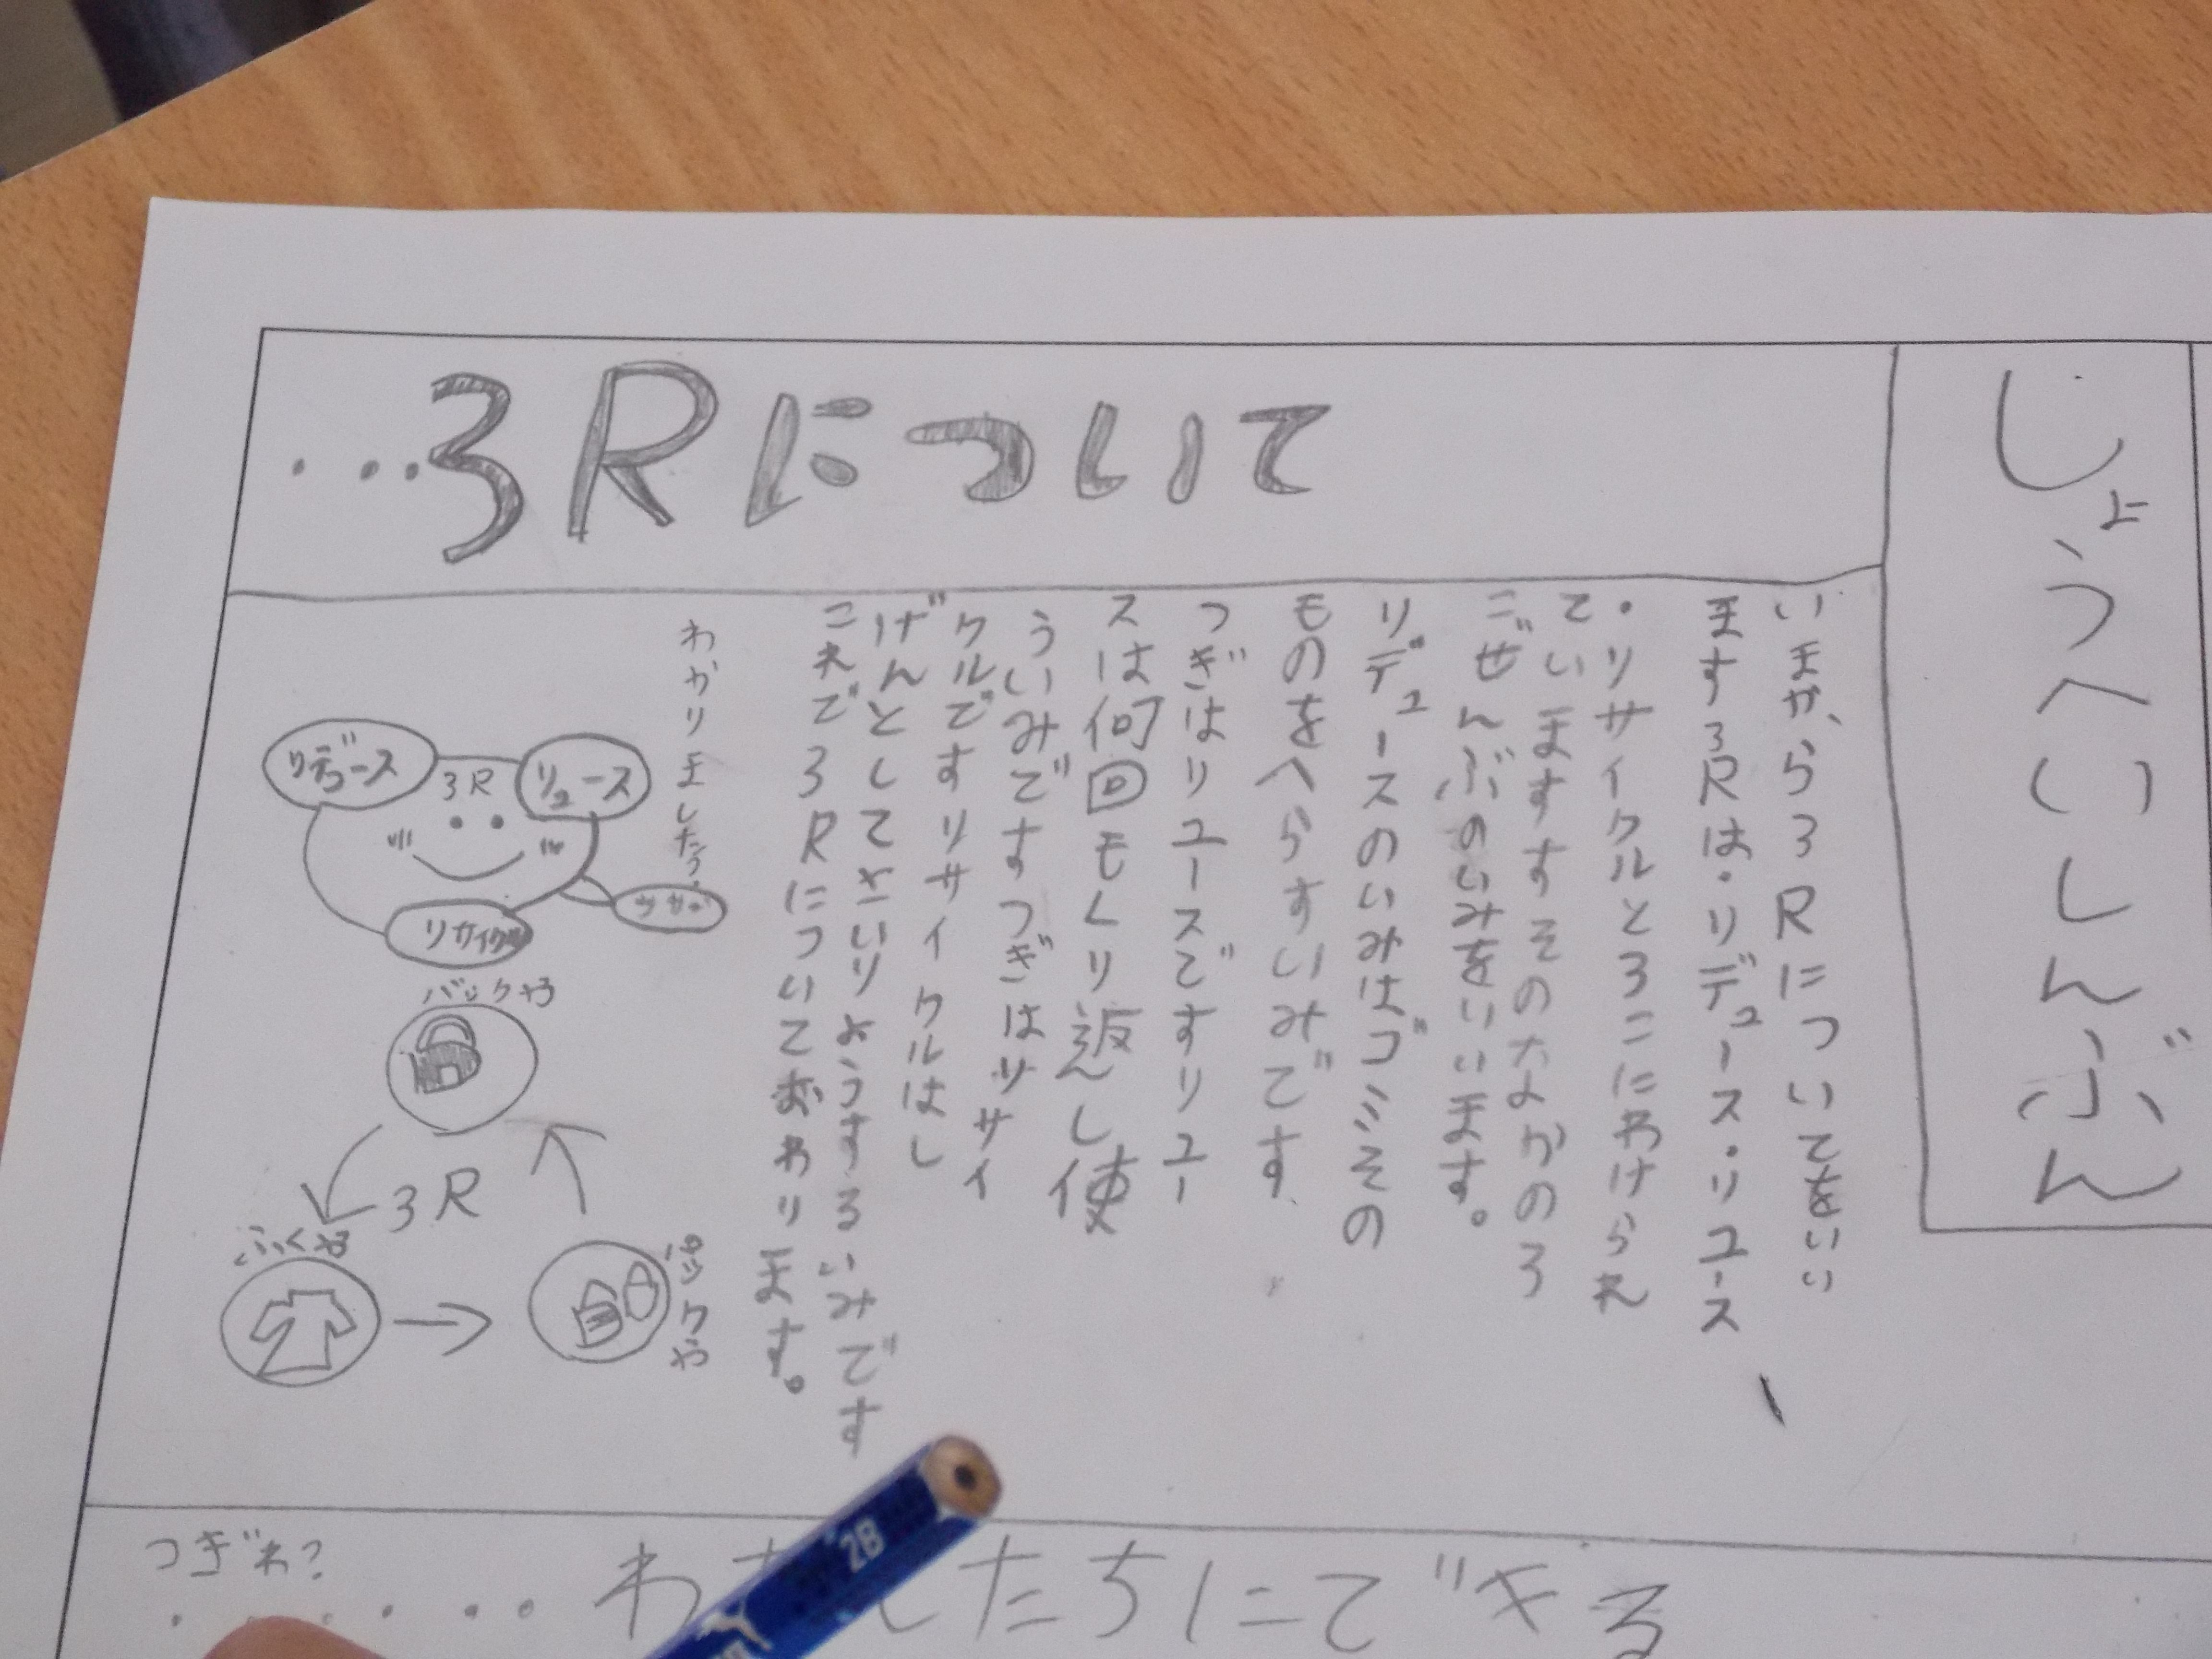 しょうへいしんぶん
・・・3Rについて
いまから3Rについてをいい
ます3Rは・リデュース・リユース
・リサイクルと3こにわけられ
ていますすそのなかの3
こぜんぶのいみをいいます。
リデュースのいみはゴミその
ものをへらすいみです
つぎはリユースですリユー
スは何回もくり返し使
ういみですつぎはリサイ
クルですリサイクルはし
げんとしてさいりようするいみです
これで3Rについておわります。
わかりましたう?
リデュース
3R
リュース
リサイクル
バックや
3R
ふくや
つぎわ?
・・・・・・わたしたちにできる
2B